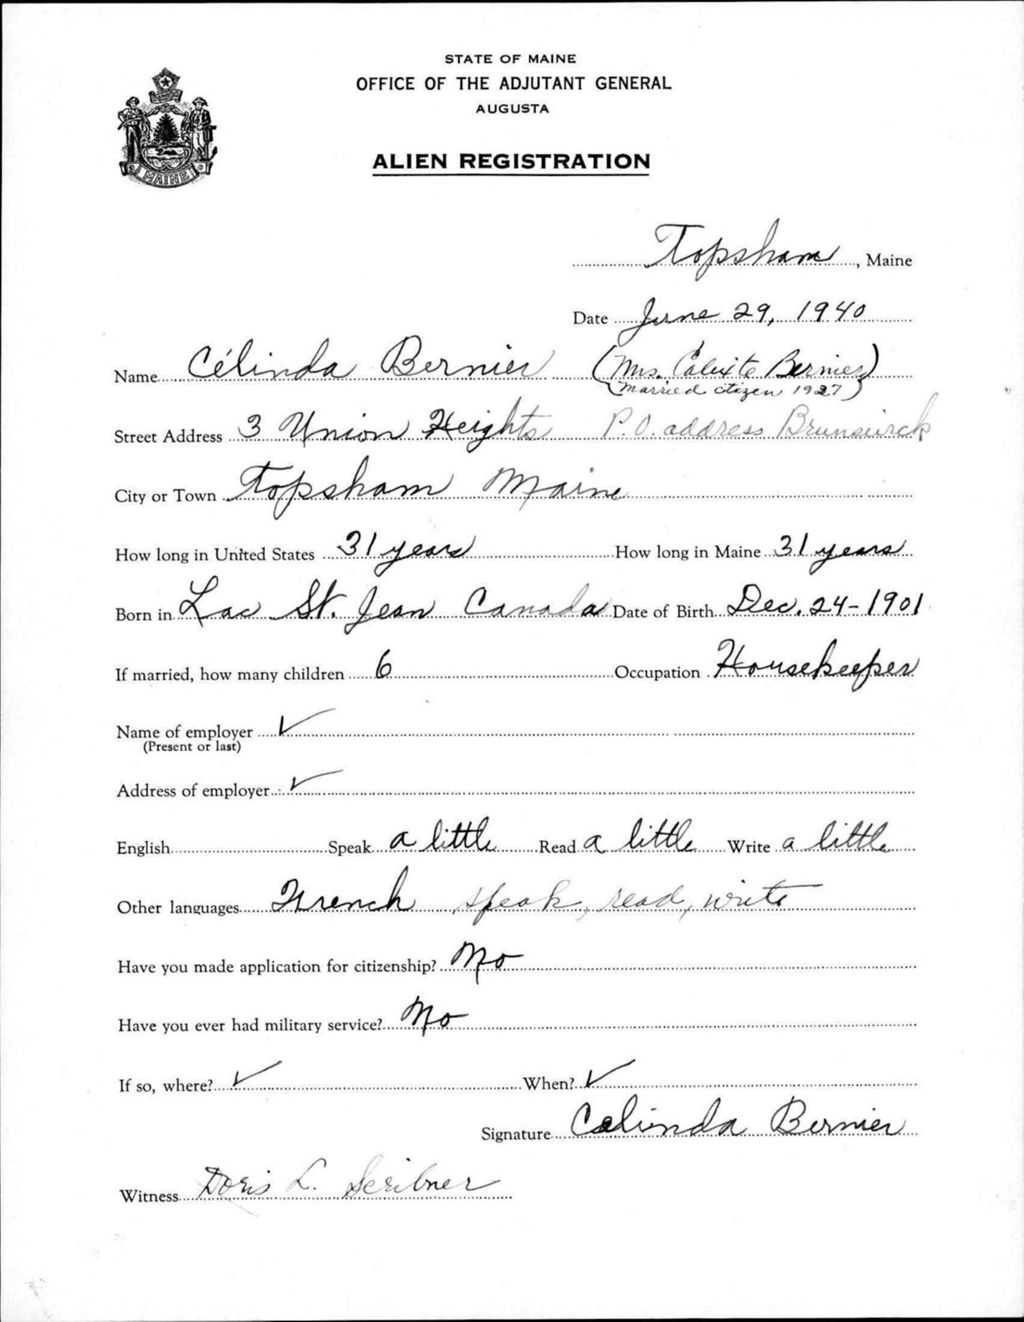 STATE OF MAINE
OFFICE OF THE ADJUTANT GENERAL
AUGUSTA
ALIEN REGISTRATION
MAINE
Topsham, Maine
Date June 29, 1940
Name Célinda Bernier (Mrs. Calixte Bernier)
(Married citizen 1927)
Street Address 3 Union Heights P.O. address Brunswick
City or Town Topsham Maine
How long in United States 31 years How long in Maine 31 years
Born in Lac St. Jean Canada Date of Birth Dec. 24-1901
If married, how many children 6 Occupation Housekeeper
Name of employer ✓
(Present or last)
Address of employer ✓
English Speak a little Read a little Write a little
Other languages French speak, read, write
Have you made application for citizenship? No
Have you ever had military service? No
If so, where? ✓ When? ✓
Signature Celinda Bernier
Witness Doris L. Scribner